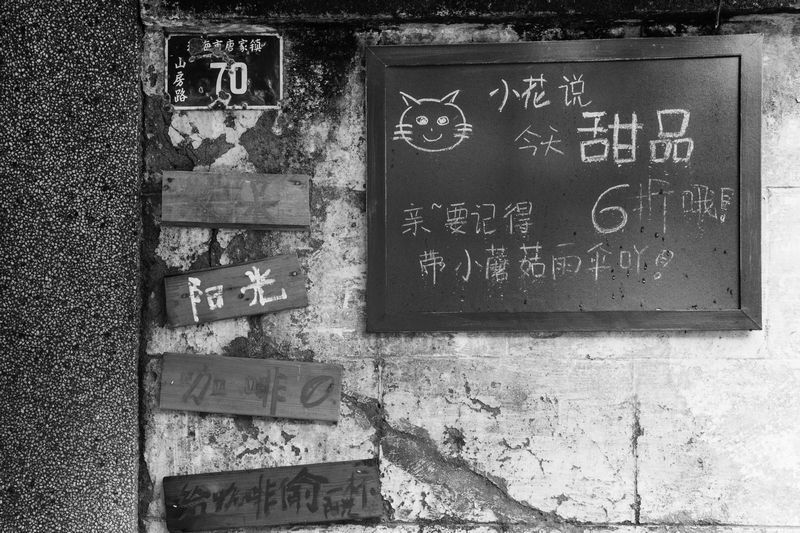 海市唐家镇
山房路
70
阳光
咖啡の
给咖啡偷
小花说
今天甜品
亲~要记得 6折哦!
带小蘑菇雨伞吖!